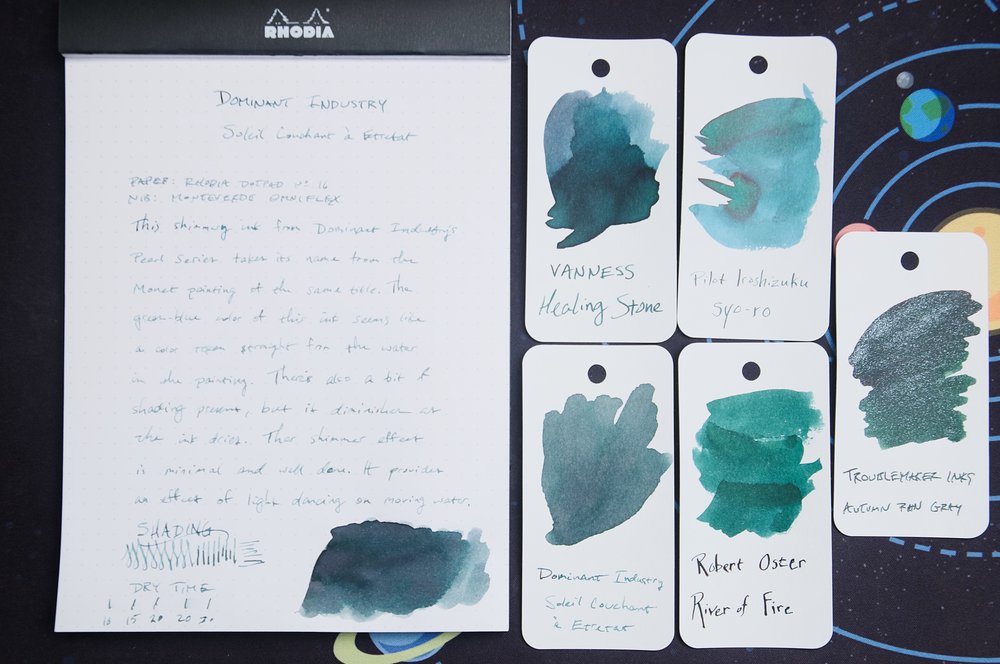 RHODIA
DOMINANT INDUSTRY
Soleil Couchant à Etretat
PAPER: RHODIA DOTPAD Nº 16
NIB: MONTEVERDE OMNIFLEX
This shimmery ink from Dominant Industry's
Pearl Series takes its name from the
Monet painting of the same title. The
green-blue color of this ink seems like
a color taken straight from the water
in the painting. There's also a bit of
shading present, but it diminishes as
the ink dries. The shimmer effect
is minimal and well done. It provides
an effect of light dancing on moving water.
SHADING
DRY TIME
10 15 20
VANNESS
Healing Stone
Pilot Iroshizuku
Syo-ro
Dominant Industry
Soleil Couchant
à Etretat
Robert Oster
River of Fire
TROUBLEMAKER INKS
AUTUMN GRAY